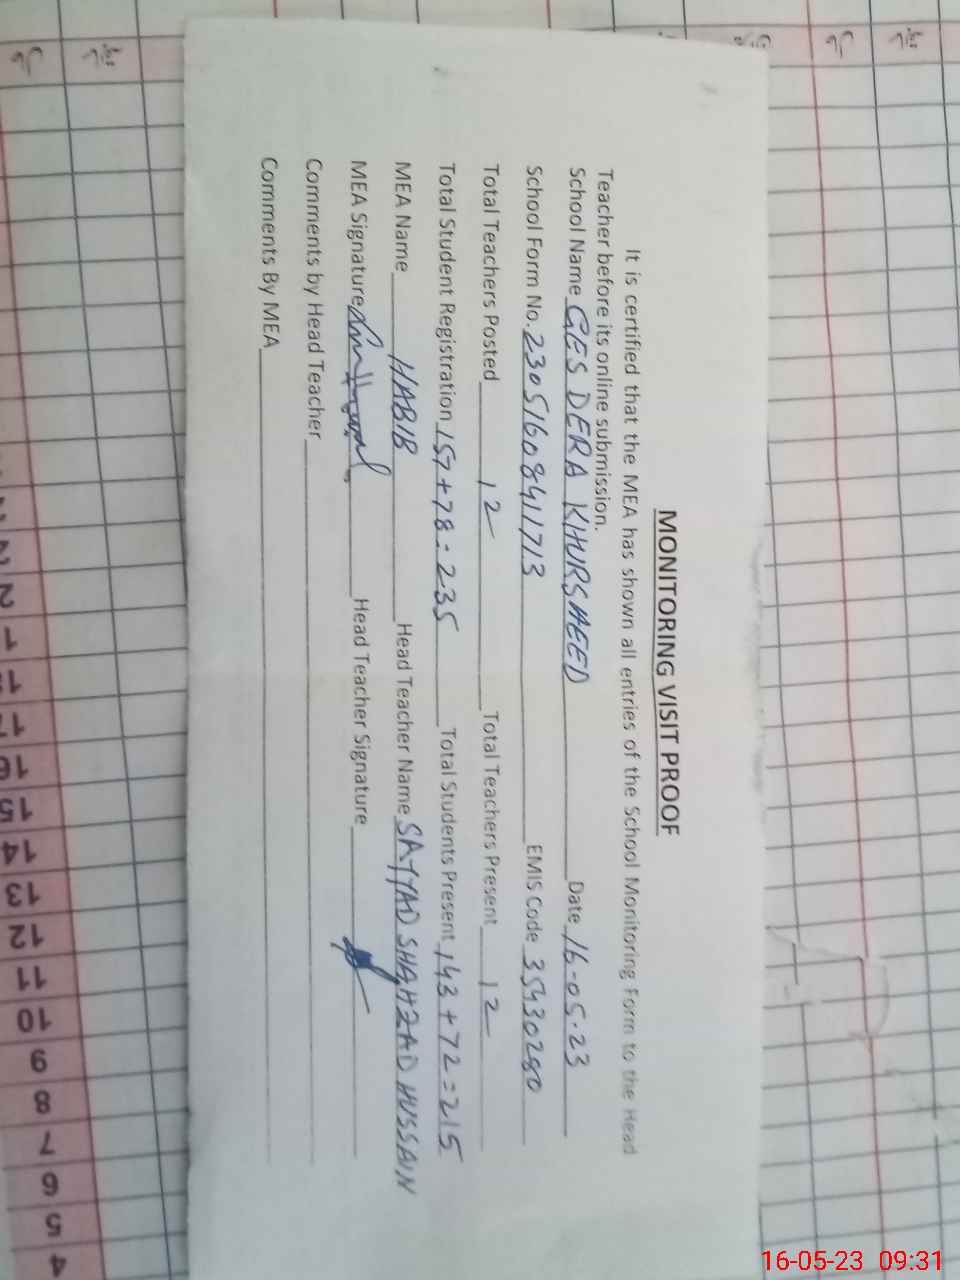 MONITORING VISIT PROOF
It is certified that the MEA has shown all entries of the School Monitoring Form to the Head
Teacher before its online submission.
School Name GES DERA KHURSHEED Date 16-05-23
School Form No. 2305160841713 EMIS Code 35430280
Total Teachers Posted 12 Total Teachers Present 12
Total Student Registration 157+78=235 Total Students Present 143+72=215
MEA Name HABIB Head Teacher Name SAYYAD SHAHZAD HUSSAIN
MEA Signature Head Teacher Signature
Comments by Head Teacher
Comments By MEA
17
16
15
14
13
12
11
10
9
8
7
6
5
4
16-05-23 09:31